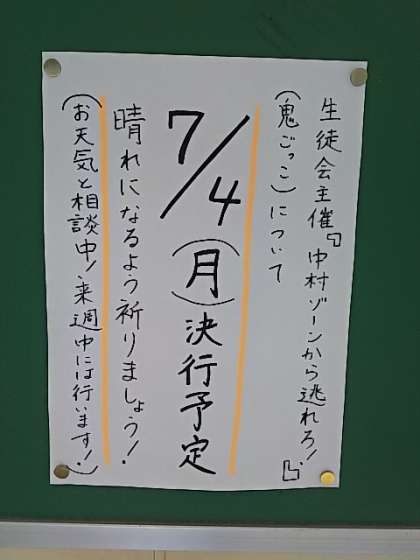 生徒会主催『中村ゾーンから逃れろ!』
(鬼ごっこ)について
7/4(月)決行予定
晴れになるよう祈りましょう!
(お天気と相談中!来週中には行います!)